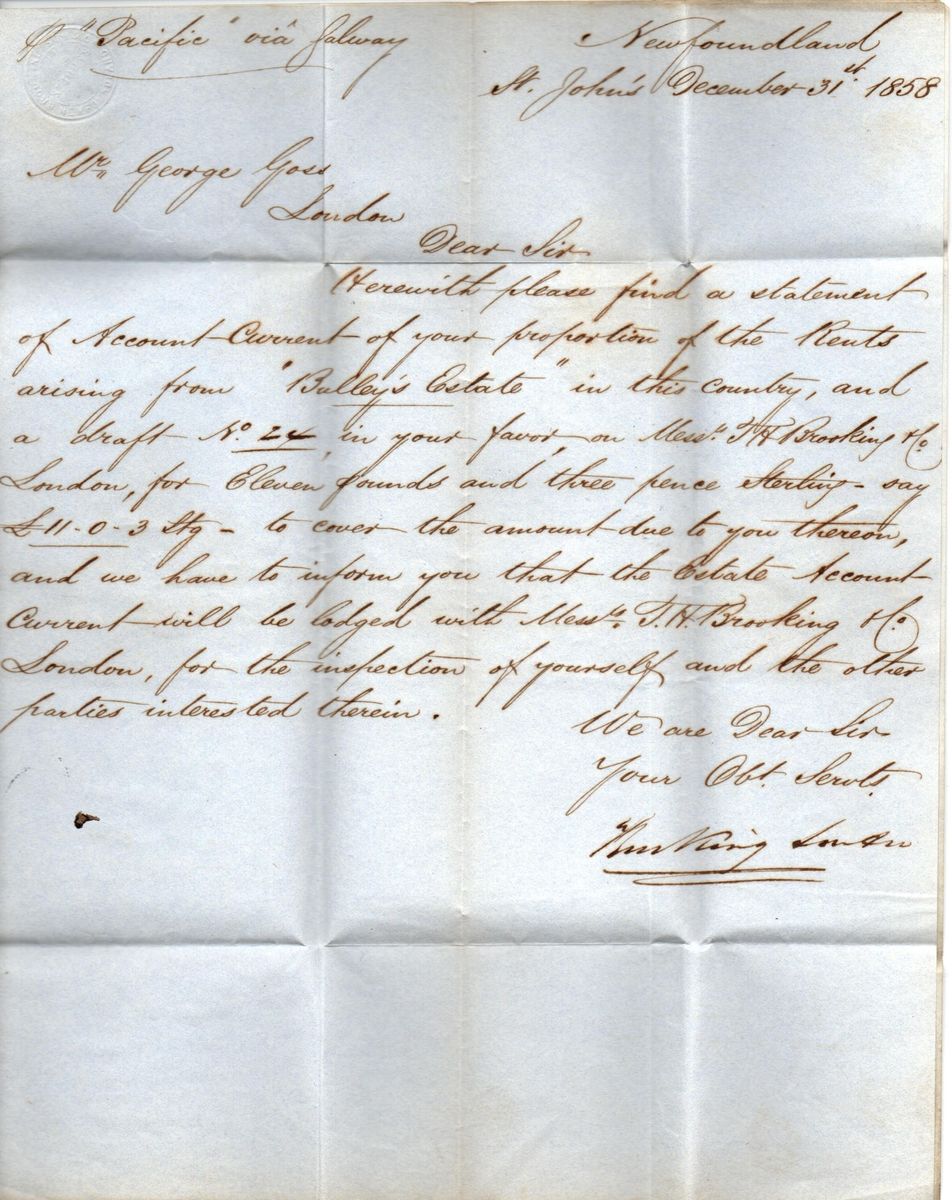 ℘ "Pacific" viâ Galway
Newfoundland
St. John's December 31st. 1858
Mr. George Goss
London
Dear Sir
Herewith please find a statement
of Account Current of your proportion of the Rents
arising from "Bulley's Estate" in this country, and
a draft No. 24, in your favor, on Messrs. T H Brooking & Co.
London, for Eleven pounds and three pence Sterling - say
£11-0-3 Stg - to cover the amount due to you thereon,
and we have to inform you that the Estate Account
Current will be lodged with Messrs. T. H. Brooking & Co.
London, for the inspection of yourself and the other
parties interested therein.
We are Dear Sir
Your Obt. Servts.